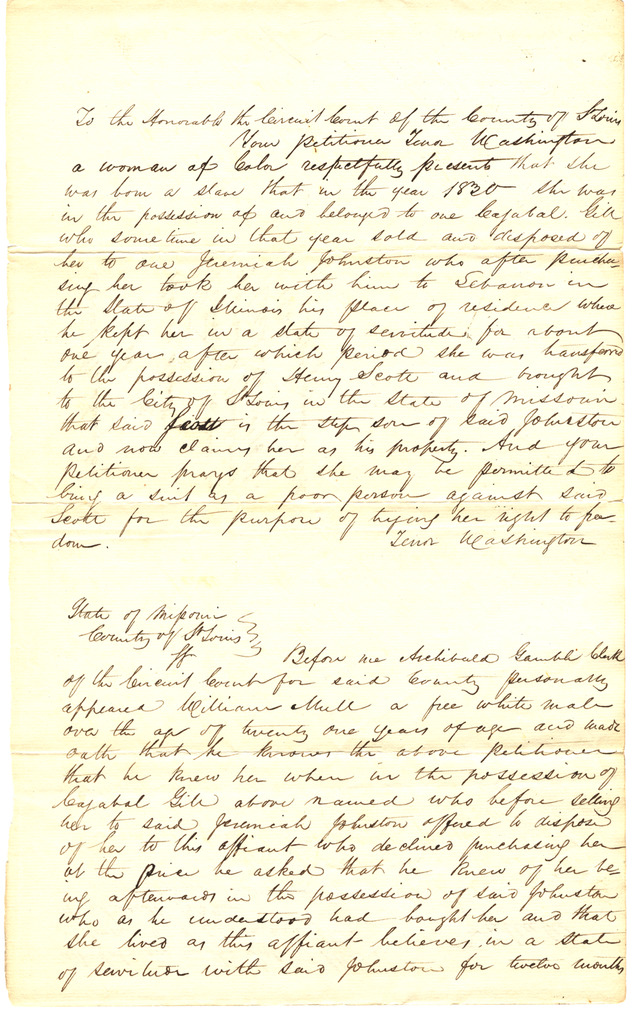 To the Honorable the Circuit Court of the County of St Louis
Your Petitioner Tenor Washington
a woman of Color respectfully presents that she
was born a slave that in the year 1830 she was
in the possession of and belonged to one Cajabal. Gill
who sometime in that year sold and disposed of
her to one Jeremiah Johnston who after purcha-
sing her took her with him to Lebanon in
the State of Illinois his place of residence where
he kept her in a state of servitude for about
one year, after which period she was transferred
to the possession of Henry Scott and brought
to the City of St Louis in the State of Missouri
that said is the step son of said Johnston
and now claims her as his property. And your
Petitioner prays that she may be permitted to
bring a suit as a poor person against said
Scott for the purpose of trying her right to free-
dom. Tenor Washington
State of Missouri
County of St Louis
Before me Archibald Gamble Clerk
of the Circuit Court for said County personally
appeared William Mull a free white male
over the age of twenty one years of age and made
oath that he knows the above Petitioner
that he knew her when in the possession of
Cajabal Gill above named who before selling
her to said Jeremiah Johnston offered to dispose
of her to this affiant who declined purchasing her
at the price he asked that he knew of her be-
ing afterwards in the possession of said Johnston
who as he understood had bought her and that
she lived as this affiant believes in a state
of servitude with said Johnston for twelve months